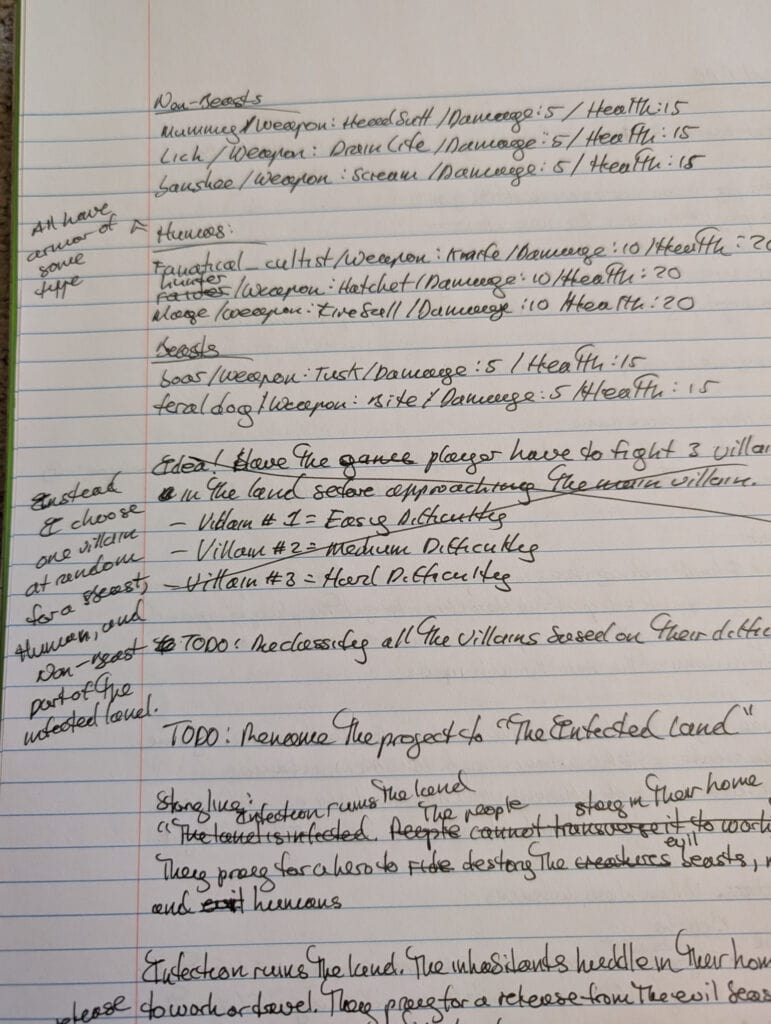 Non-Beasts
Mummy/Weapon: /Damage: 5 / Health: 15
Lich / Weapon: Drain Life /Damage: 5/ Health: 15
banshee/Weapon: Scream /Damage: 5 / Health: 15
All have
armor of
some
type
Humans:
Fanatical_cultist/Weapon: Knife/Damage: 10/Health: 20
hunter
raider/Weapon: Hatchet/Damage: 10/Health: 20
Mage/Weapon: /Damage: 10 Health: 20
Beasts
boar/Weapon: Tusk/Damage: 5 / Health: 15
feral dog/Weapon: Bite/Damage: 5/Health: 15
Idea! Have the game player have to fight 3 villai
in the land before approaching the main villain.
- Villain # 1 = Easy Difficulty
- Villain #2 = Medium Difficulty
- Villain #3 = Hard Difficulty
Instead
I choose
one villain
at random
for a Beast,
Human, and
Non-Beast
part of the
infected land.
TODO: Reclassify all the villains based on their diffic
TODO: Rename the project to "The Infected Land"
Storyline:
Infection ruins the land
The people stay in their home
"The land is infected. People cannot transverse it to work
evil
They pray for a hero to destroy the creatures beasts,
and evil humans
Infection ruins the land. The inhabitants huddle in their hom
release to work or travel. They pray for a release from the evil beas